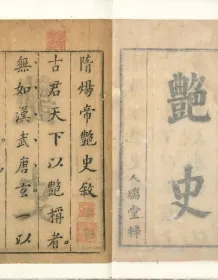 艷史
人瑞堂梓
隋煬帝艷史敘
古君天下以艷稱者
無如漢武唐玄一以